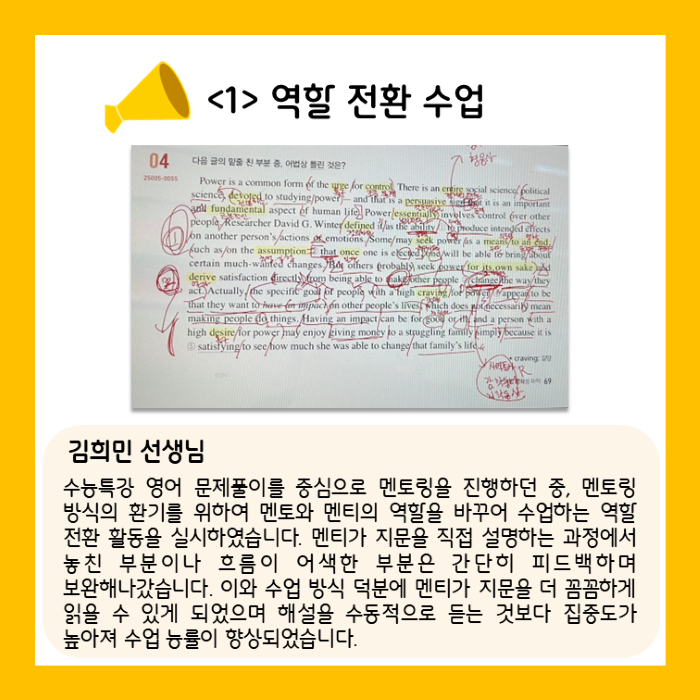 <1> 역할 전환 수업
04
25005-0055
다음 글의 밑줄 친 부분 중, 어법상 틀린 것은?
Power is a common form of the urge for control. There is an entire social science, political
science, devoted to studying power — and that is a persuasive sign that it is an important
and fundamental aspect of human life. Power essentially involves control over other
people. Researcher David G. Winter defined it as the ability to produce intended effects
on another person's actions or emotions. Some may seek power as a means to an end,
such as on the assumption that once one is elected, one will be able to bring about
certain much-wanted changes. But others probably seek power for its own sake and
derive satisfaction directly from being able to make other people change the way they
act. Actually, the specific goal of people with a high craving for power appear to be
that they want to have impact on other people's lives, which does not necessarily mean
making people do things. Having an impact can be for good or ill, and a person with a
high desire for power may enjoy giving money to a struggling family simply because it is
⑤ satisfying to see how much she was able to change that family's life.
• craving: 갈망
69
김희민 선생님
수능특강 영어 문제풀이를 중심으로 멘토링을 진행하던 중, 멘토링
방식의 환기를 위하여 멘토와 멘티의 역할을 바꾸어 수업하는 역할
전환 활동을 실시하였습니다. 멘티가 지문을 직접 설명하는 과정에서
놓친 부분이나 흐름이 어색한 부분은 간단히 피드백하며
보완해나갔습니다. 이와 수업 방식 덕분에 멘티가 지문을 더 꼼꼼하게
읽을 수 있게 되었으며 해설을 수동적으로 듣는 것보다 집중도가
높아져 수업 능률이 향상되었습니다.